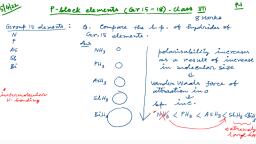 P-block elements (Gr. 15 - 18) - Class XII
Group 15 elements :
Q. Compare the b.p. of hydrides of
Gr. 15 elements.
3 Marks
Ans
N
P
As
Sb
Bi
NH₃
PH₃
AsH₃
SbH₃
BiH₃
polarisability increases
as a result of increase
in molecular size
↓
Vander Waals force of
attraction inc
↓
b.p. inc.
NH₃ < PH₃ < AsH₃ < SbH₃ < BiH₃
* intermolecular
H-bonding
extremely
large size